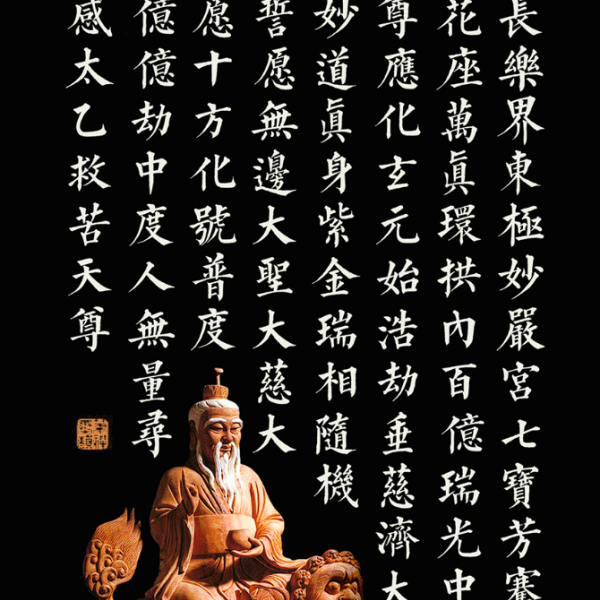 長樂界東極妙嚴宮七寶芳騫
花座萬眞環拱內百億瑞光中
尊應化玄元始浩劫垂慈濟大
妙道眞身紫金瑞相隨機
誓愿無邊大聖大慈大
愿十方化號普度
億億劫中度人無量尋
感太乙救苦天尊